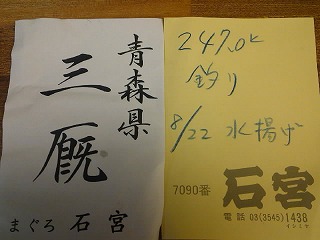 青森県
三厩
まぐろ 石宮
247.0k
釣り
8/22 水揚げ
7090番
石宮
電話 03(3545)1438
イシミヤ